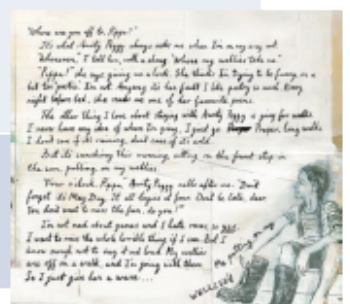 'Where are you off to, Pippa?'
It's what Aunty Peggy always asks me when I'm on my way out.
'Wherever,' I tell her, with a shrug. 'Where my wellies take me.'
'Pippa!' she says giving me a look. She thinks I'm trying to be funny or a
bit too poetic. I'm not. Anyway its her fault I like poetry so much. Every
night before bed, she reads me one of her favourite poems.
The other thing I love about staying with Aunty Peggy is going for walks.
I never have any idea of where I'm going, I just go. Proper, long walks.
I don't care if its raining, don't care if its cold.
But its scorching this morning, sitting on the front step in
the sun, pulling on my wellies.
'Four o'clock, Pippa,' Aunty Peggy calls after me. 'Don't
forget its May Day. It all begins at four. Don't be late, dear.
You don't want to miss the fun, do you?'
I'm not mad about games and I hate races, so yes,
I want to miss the whole horrible thing if I can. But I
know enough not to say it out loud. My wellies
are off on a walk, and I'm going with them.
So I just give her a wave...
Me pulling on my
wellies